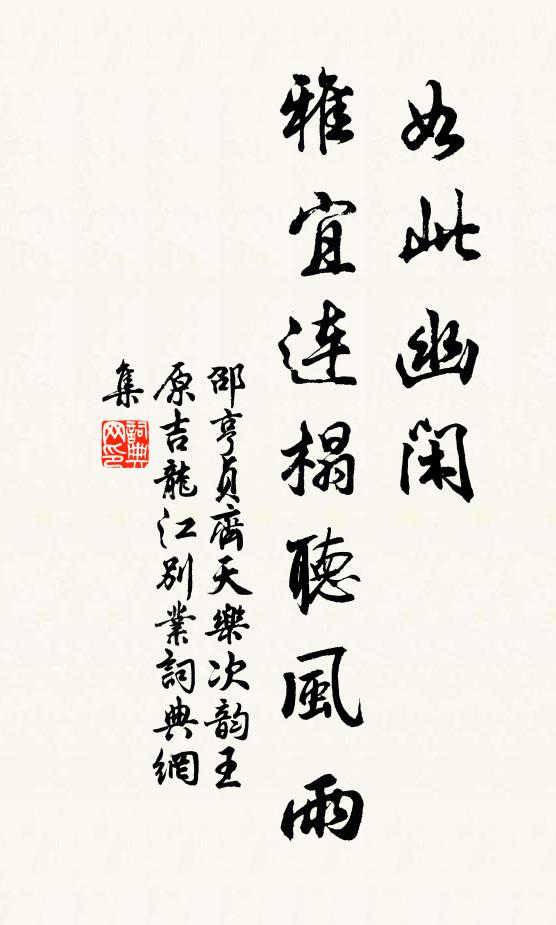 如此幽閑
雅宜連榻聽風雨
邵亨貞齊天樂次韵王
原吉龍江別業詞典網
集
詞典
网印